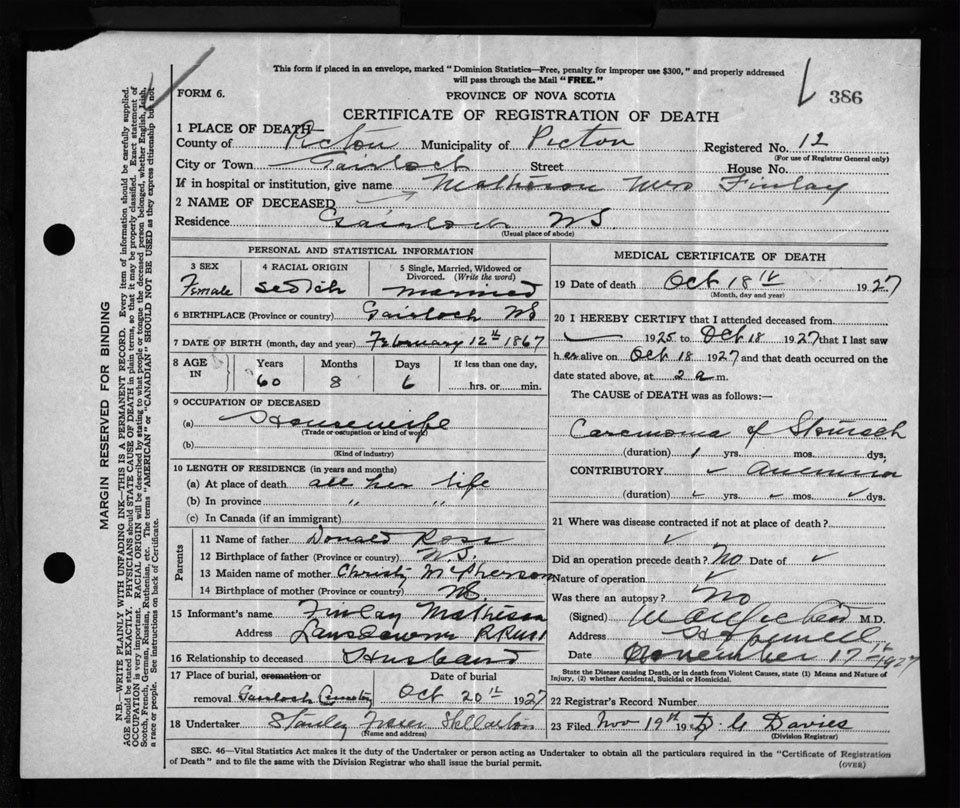 This form if placed in an envelope, marked " Dominion Statistics—Free, penalty for improper use $300, " and properly addressed
will pass through the Mail " FREE. "
FORM 6.
PROVINCE OF NOVA SCOTIA
386
CERTIFICATE OF REGISTRATION OF DEATH
1 PLACE OF DEATH
County of Picton Municipality of Picton Registered No. 12
(For use of Registrar General only)
City or Town Gairloch Street House No.
If in hospital or institution, give name Matheson Mrs Finlay
2 NAME OF DECEASED
Residence Gairloch NS
(Usual place of abode)
PERSONAL AND STATISTICAL INFORMATION
3 SEX 4 RACIAL ORIGIN 5 Single, Married, Widowed or
Divorced. (Write the word)
Female Scotch Married
6 BIRTHPLACE (Province or country) Gairloch NS
7 DATE OF BIRTH (month, day and year) February 12th 1867
8 AGE IN Years Months Days If less than one day,
60 8 6 hrs. or min.
9 OCCUPATION OF DECEASED
(a) Housewife
(Trade or occupation or kind of work)
(b)
(Kind of industry)
10 LENGTH OF RESIDENCE (in years and months)
(a) At place of death all her life
(b) In province " "
(c) In Canada (if an immigrant)
Parents
11 Name of father Donald Ross
12 Birthplace of father (Province or country) N.S.
13 Maiden name of mother Christy McPherson
14 Birthplace of mother (Province or country) NS
15 Informant's name Finlay Matheson
Address Lansdowne RR No 1
16 Relationship to deceased Husband
17 Place of burial, cremation or Date of burial
removal Gairloch Cemetery Oct 20th 1927
18 Undertaker Stanley Fraser Stellarton
(Name and address)
MEDICAL CERTIFICATE OF DEATH
19 Date of death Oct 18th 1927
(Month, day and year)
20 I HEREBY CERTIFY that I attended deceased from
1925 to Oct 18 1927 that I last saw
her alive on Oct 18 1927 and that death occurred on
date stated above, at 2 a m.
The CAUSE of DEATH was as follows:—
Carcinoma of Stomach
(duration) 1 yrs. mos. dys.
CONTRIBUTORY Anemia
(duration) yrs. mos. dys.
21 Where was disease contracted if not at place of death?
Did an operation precede death? No Date of
Nature of operation
Was there an autopsy? No
(Signed) M.D.
Address
Date November 17th 1927
State the Disease causing Death, or in death from Violent Causes, state (1) Means and Nature of
Injury, (2) whether Accidental, Suicidal or Homicidal.
22 Registrar's Record Number
23 Filed Nov 19th 1927 Davies
(Division Registrar)
SEC. 46—Vital Statistics Act makes it the duty of the Undertaker or person acting as Undertaker to obtain all the particulars required in the "Certificate of Registration
of Death" and to file the same with the Division Registrar who shall issue the burial permit.
(OVER)
MARGIN RESERVED FOR BINDING
N.B.—WRITE PLAINLY WITH UNFADING INK—THIS IS A PERMANENT RECORD. Every item of information should be carefully supplied.
AGE should be stated EXACTLY. PHYSICIANS should STATE CAUSE OF DEATH in plain terms, so that it may be properly classified. Exact statement of
OCCUPATION is very important. RACIAL ORIGIN will be described by stating to what people or tongue the deceased person belonged, whether English, Irish,
Scotch, French, German, Russian, Ruthenian, etc. The terms "AMERICAN" or "CANADIAN" SHOULD NOT BE USED as they express citizenship but not
a race or people. See instructions on back of Certificate.